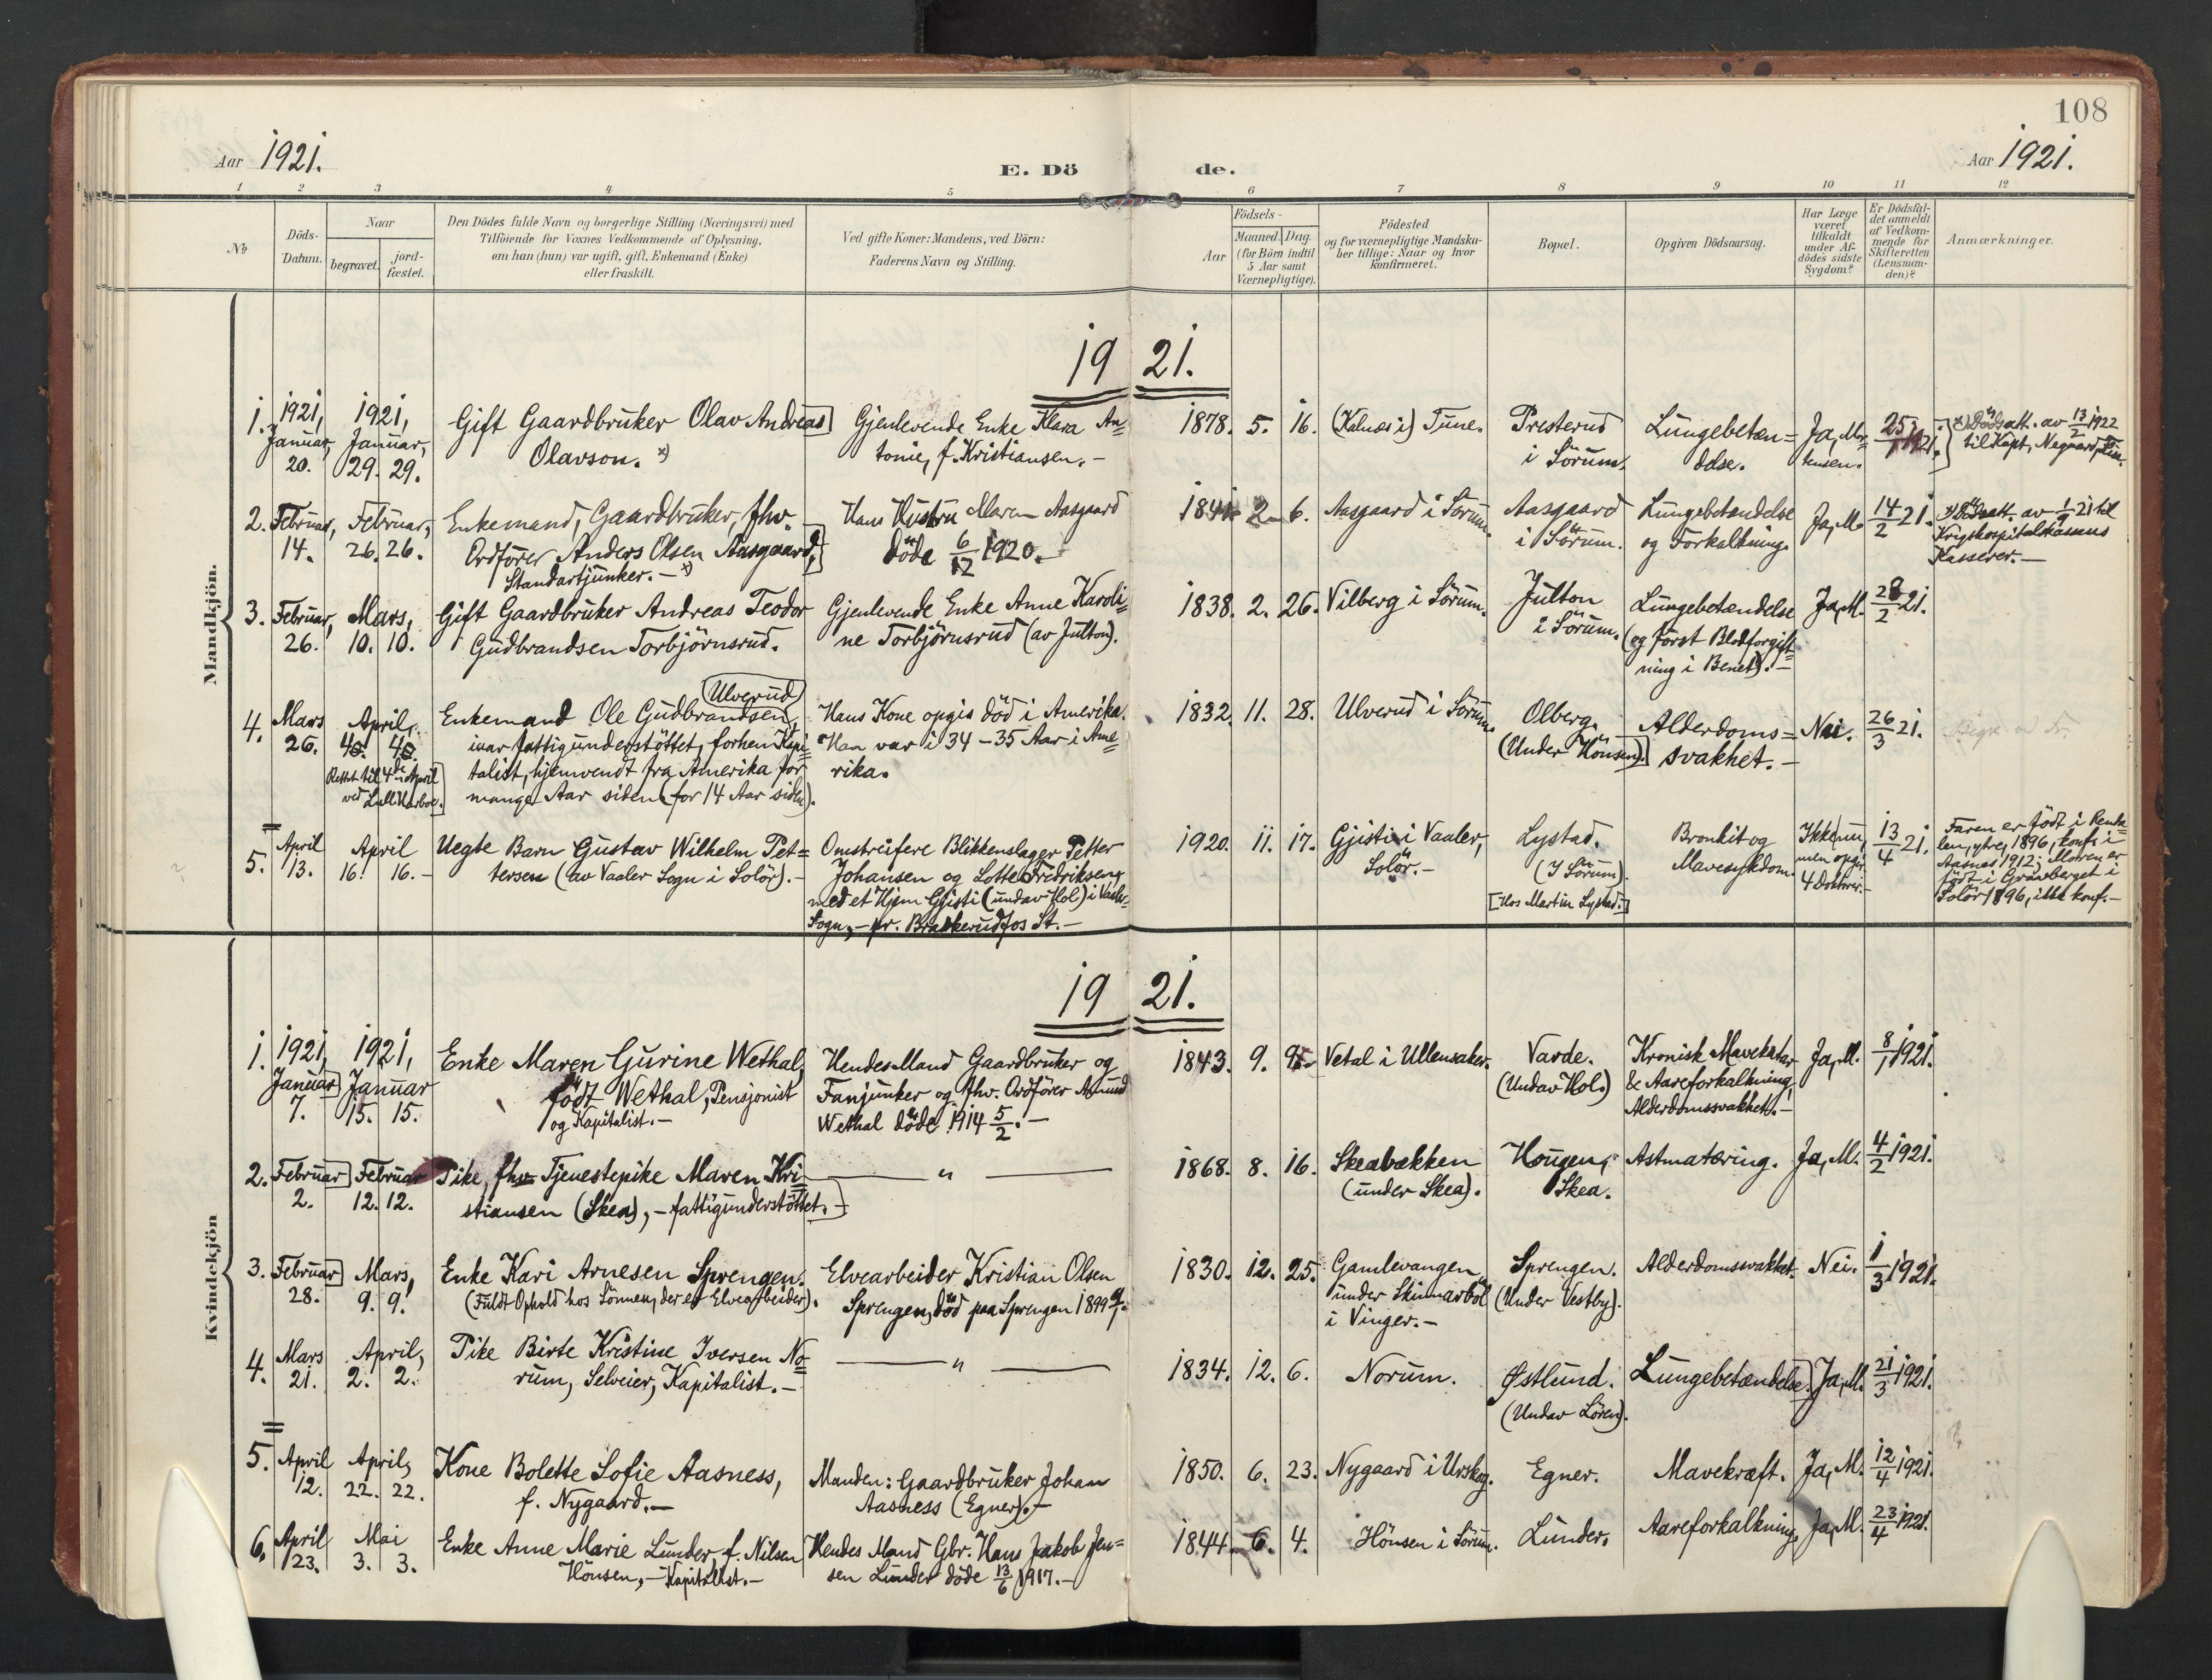 108
Aar 1921.
E. Dö de.
Aar 1921.
1 2 3 4 5 6 7 8 9 10 11 12
No
Döds-
Datum.
Naar
begravet.
jord-
fæstet.
Den Dödes fulde Navn og borgerlige Stilling (Næringsvei) med
Tilföiende for Voxnes Vedkommende af Oplysning,
om han (hun) var ugift, gift, Enkemand (Enke)
eller fraskilt.
Ved gifte Koner: Mandens, ved Börn:
Faderens Navn og Stilling.
Födsels-
Aar
Maaned. Dag.
(for Börn indtil
5 Aar samt
Værnepligtige).
Födested
og for værnepligtige Mandska-
ber tillige: Naar og hvor
konfirmeret.
Bopæl.
Opgiven Dödsaarsag.
Har Læge
været
tilkaldt
under Af-
dödes sidste
Sygdom?
Er Dödsfal-
det anmeldt
af Vedkom-
mende for
Skifteretten
(Lensman-
den)?
Anmærkninger.
Mandkjön.
1921.
1. 1921, Januar, 20.
1921, Januar, 29. 29.
Gift Gaardbruker Olav Andreas
Olavson. x)
Gjenlevende Enke Klara An=
tonie, f. Kristiansen. -
1878. 5. 16.
(Kalnæs i) Tune.
Presterud
i Sörum.
Lungebetæn=
delse.
Ja, Mor=
tensen.
25/1 1921.
x) Dödsatt. av 13/2 1922
til Kapt.
2. Februar, 14.
Februar, 26. 26.
Enkemand, Gaardbruker, fhv.
Ordförer Anders Olsen Aasgaard,
Standartjunker. - x)
Hans Hustru Maren Aasgaard
döde 6/12 1920. -
1841 2 6.
Aasgaard i Sörum.
Aasgaard
i Sörum.
Lungebetændelse
og Forkalkning.
Ja, M.
14/2 21.
x) Dödsatt. av 1/9 21 til
Krigshospitalskassens
Kasserer. -
3. Februar, 26.
Mars, 10. 10.
Gift Gaardbruker Andreas Teodor
Gudbrandsen Torbjörnsrud.
Gjenlevende Enke Anne Karoli=
ne Torbjörnsrud (av Julton).
1838. 2. 26.
Vilberg i Sörum.
Julton
i Sörum.
Lungebetændelse
(og först Blodforgift=
ning i Benet). -
Ja, M.
28/2 21.
4. Mars 26.
April, 4. 4.
Rettet til 4de April
ved
Ulverud
Enkemand Ole Gudbrandsen,
ivar fattigunderstöttet, forhen Kapi=
talist, hjemvendt fra Amerika for
mange Aar siden (for 14 Aar siden).
Hans Kone opgis död i Amerika.
Han var i 34 - 35 Aar i Ame=
rika.
1832 11. 28.
Ulverud i Sörum.
Olberg.
(Under Hönsen).
Alderdoms=
svakhet. -
Nei.
26/3 21.
5. April 13.
April 16. 16. -
Uegte Barn Gustav Wilhelm Pet=
tersen (av Vaaler Sogn i Solör). -
Omstreifere Blikkenslager Petter
Johansen og Lotte Fredriksen,
med et Hjem Gjisti (undav Hol) i Vaaler
Sogn, - pr. Braskerudfos St. -
1920. 11. 17.
Gjisti i Vaaler,
Solör. -
Lystad.
(I Sörum).
[Hos Martin Lystad.]
Bronkit og
Mavesykdom.
Ikke nu,
men opgir
4 Doktorer. -
13/4 21.
Faren er födt i
1896, konf. i
Aasnes 1912; Moren er
födt i Gravberget i
Solör 1896, ikke konf. -
Kvindekjön
1921.
1. 1921, Januar 7.
1921, Januar 15. 15.
Enke Maren Gurine Wethal,
födt Wethal, Pensjonist
og Kapitalist. -
Hendes Mand Gaardbruker og
Fanjunker og fhv. Ordförer Amund
Wethal döde 1914 5/2. -
1843. 9.
Vetal i Ullensaker.
Varde.
(Undav Hol.)
Kronisk Mavekatar
& Aareforkalkning,
Alderdomssvakhet. -
Ja, M.
8/1 1921.
2. Februar 2.
Februar 12. 12.
Pike, fhv. Tjenestepike Maren Kri=
stiansen (Skea), - fattigunderstöttet. -
— " —
1868. 8. 16.
Skeabækken
(under Skea).
Hougen,
Skea.
Astmatæring.
Ja, M.
4/2 1921.
3. Februar 28.
Mars, 9. 9.
Enke Kari Arnesen Sprengen.
(Fuldt Ophold hos Sönnen, der er Elvearbeider).
Elvearbeider Kristian Olsen
Sprengen, död paa Sprengen 1899
1830. 12. 25.
Gamlevangen
under Skinnarböl
i Vinger. -
Sprengen.
(Under Vestby).
Alderdomssvakhet.
Nei.
1/3 1921.
4. Mars 21.
April, 2. 2.
Pike Birte Kristine Iversen No=
rum, Selveier, Kapitalist. -
— " —
1834. 12. 6.
Norum.
Østlund.
(Undav Lören).
Lungebetændelse.
Ja, M.
21/3 1921.
5. April 12.
April, 22. 22.
Kone Bolette Sofie Aasness,
f. Nygaard. -
Manden: Gaardbruker Johan
Aasness (Egner). -
1850. 6. 23.
Nygaard i Urskog.
Egner.
Mavekræft.
Ja, M.
12/4 1921.
6. April 23.
Mai 3. 3.
Enke Anne Marie Lunder, f. Nilsen
Hönsen, - Kapitalist. -
Hendes Mand Gbr. Hans Jakob Jen=
sen Lunder döde 13/6 1917. -
1844. 6. 4.
Hönsen i Sörum.
Lunder.
Aareforkalkning.
Ja, M.
23/4 1921.